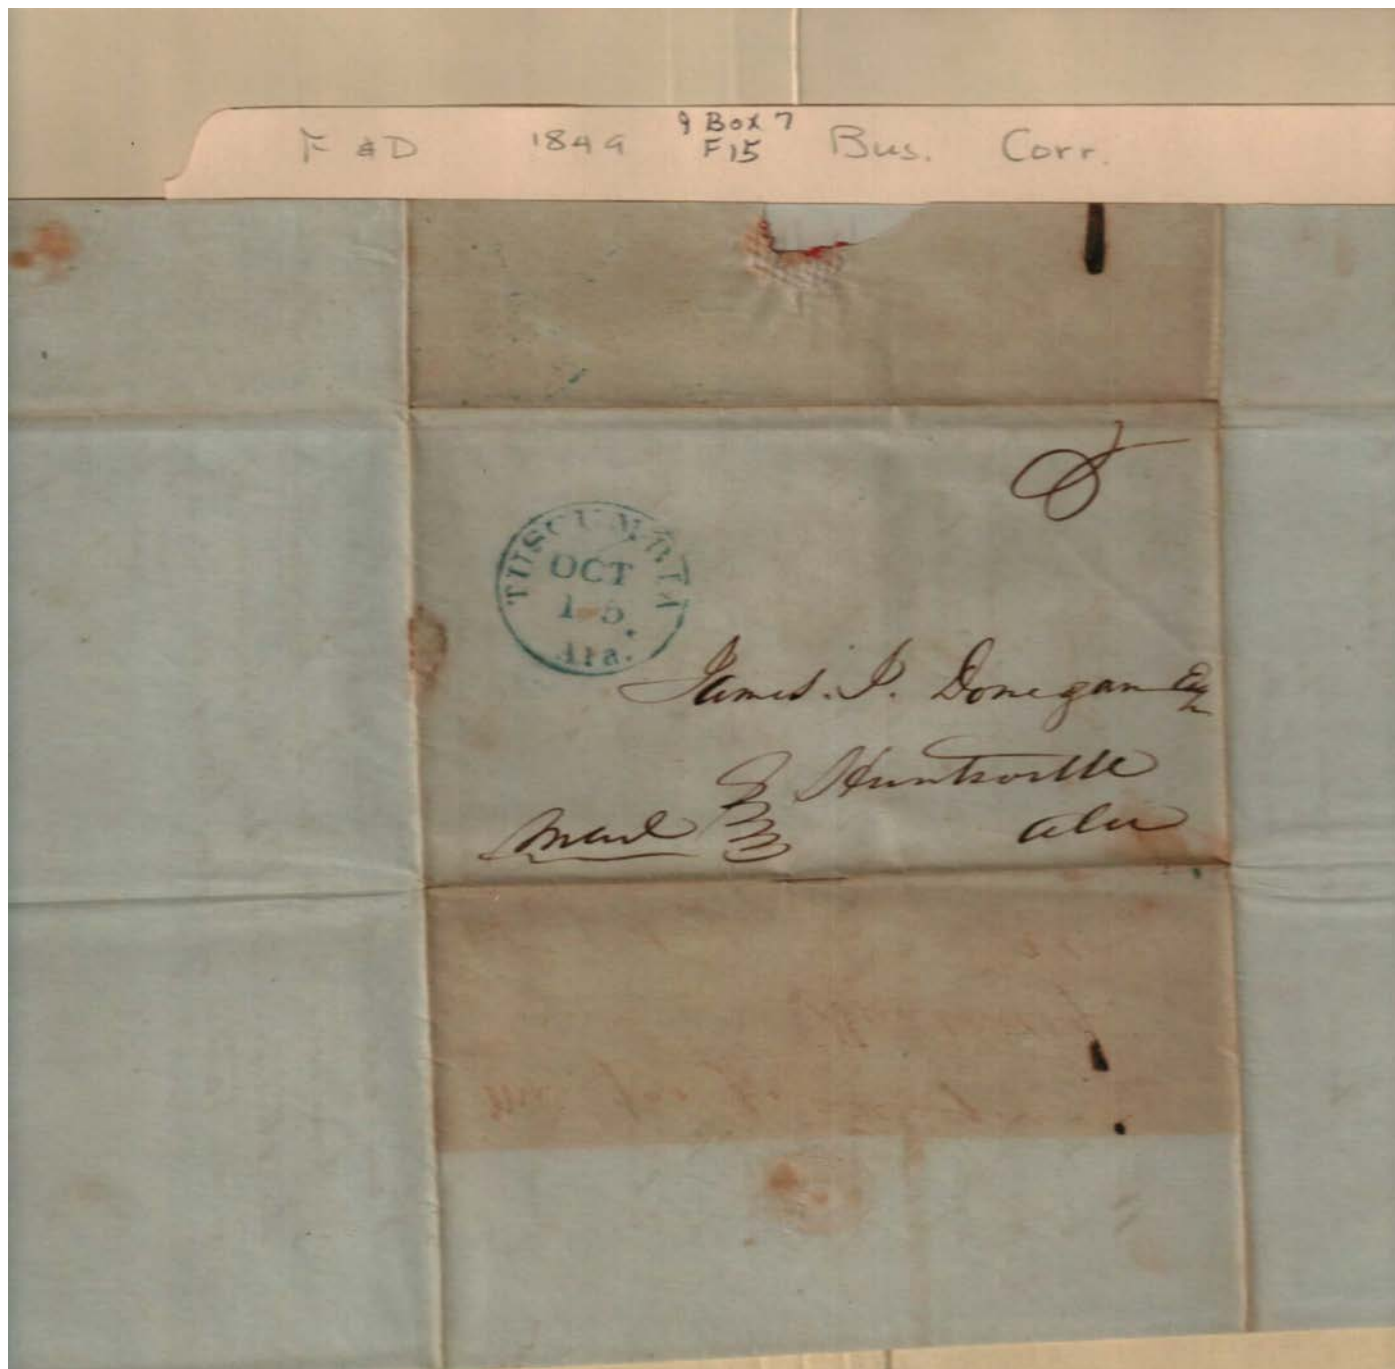 F & D 1849 9 Box 7 Bus. Corr.
F15
5
TUSCUMBIA
OCT
15
Ala.
James. J. Donegan Esq
Huntsville
Mail Ala